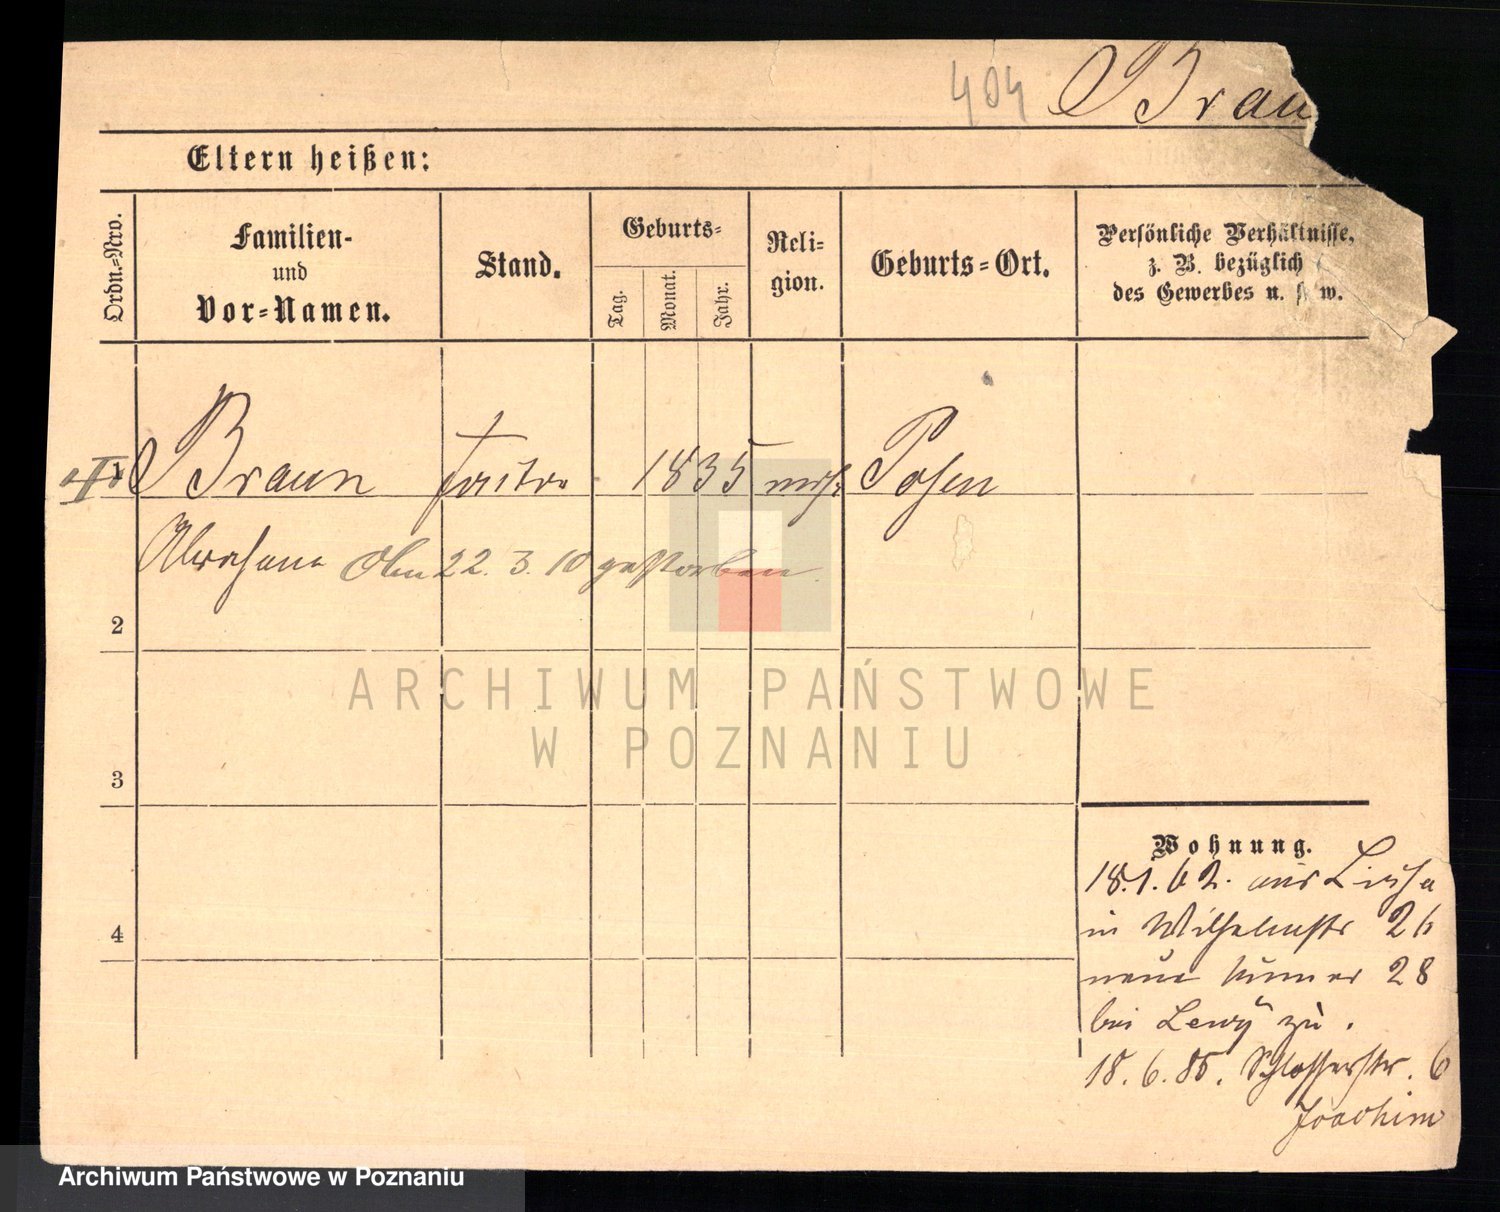 404 Brau
Eltern heißen:
Ordn.-Nro.
Familien-
und
Vor-Namen.
Stand.
Geburts-
Tag.
Monat.
Jahr.
Reli-
gion.
Geburts-Ort.
Persönliche Verhältnisse,
z. B. bezüglich
des Gewerbes u. s. w.
1 Braun 1835 mos. Posen
Abraham Am 22. 3. 10 gestorben.
2
3
4
Wohnung.
18.1.62. aus
in Wilhelmstr 26
neue Numer 28
bei Lewÿ zu.
18.6.85. Schlosserstr. 6
Joachim
ARCHIWUM PAŃSTWOWE
W POZNANIU
Archiwum Państwowe w Poznaniu